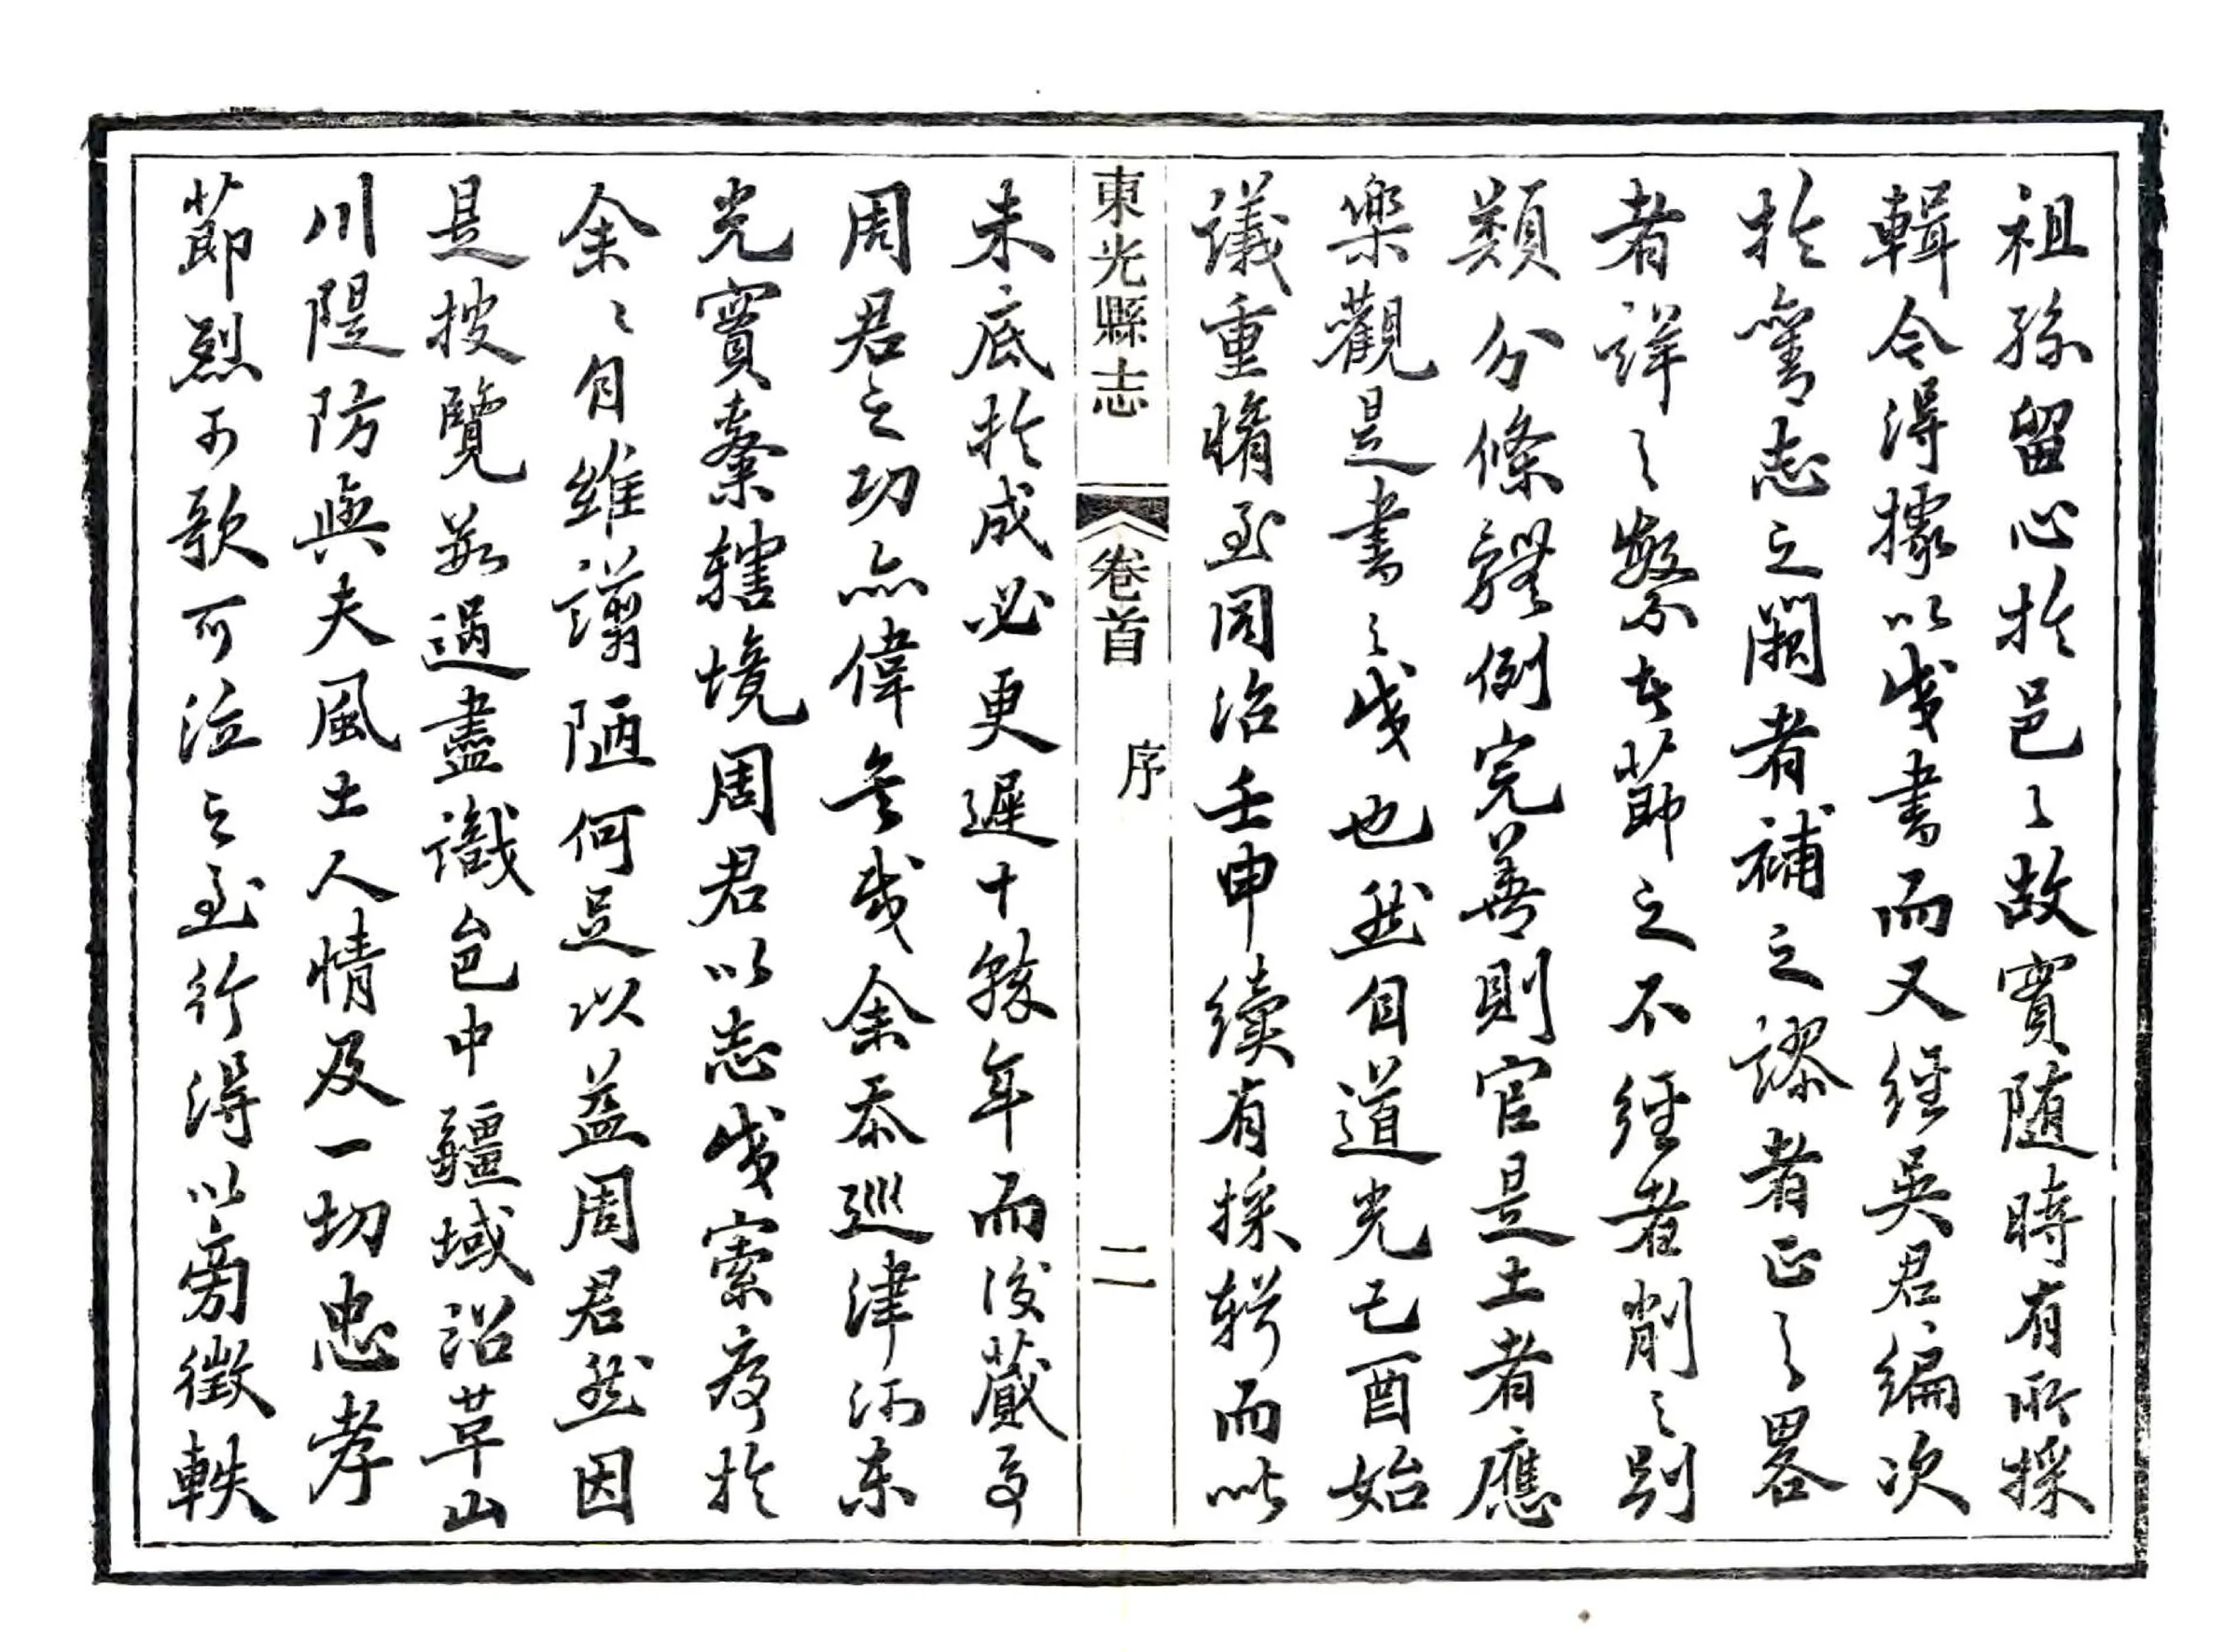 祖孫留心於邑々故實随時有所採
輯令得據以成書而又經吳君編次
於舊志之闕者補之謬者正之畧
者詳之繁者節之不經者削之別
類分條體例完善則官是土者應
樂觀是書之成也然自道光己酉始
議重脩至同治壬申續有採輯而以
東光縣志 卷首 序 二
未底於成必更遲十餘年而後蕆事
周君之功亦偉矣哉余忝巡津河東
光實隸轄境周君以志成索序於
余々自維譾陋何足以益周君然因
是披覽數過盡識邑中疆域沿革山
川隄防與夫風土人情及一切忠孝
節烈可歌可泣之至行得以旁徵軼